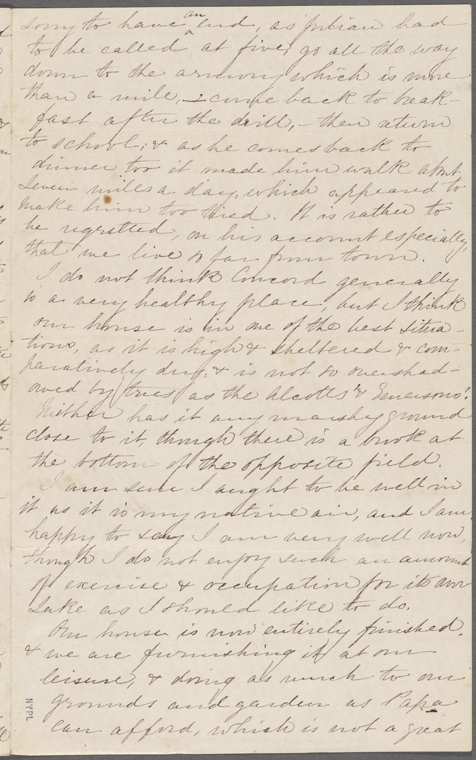 sorry to have an end, as Julian had
to be called at five, go all the way
down to the armory which is more
than a mile, & come back to break-
fast after the drill, – then return
to school; & as he comes back to
dinner too it made him walk about
seven miles a day, which appeared to
make him too tired. It is rather to
be regretted, on his account especially,
that we live so far from town.
I do not think Concord generally
is a very healthy place, but I think
our house is in one of the best situa-
tions, as it is high & sheltered & com-
paratively dry, & is not so overshad-
owed by trees as the Alcotts' & Emersons'.
Neither has it any marshy ground
close to it, though there is a brook at
the bottom of the opposite field.
I am sure I ought to be well in
it as it is my native air, and I am
happy to say I am very well now,
though I do not enjoy such an amount
of exercise & occupation for its own
sake as I should like to do.
Our house is now entirely finished,
& we are furnishing it at our
leisure, & doing as much to our
grounds and garden as Papa
can afford, which is not a great
NYPL